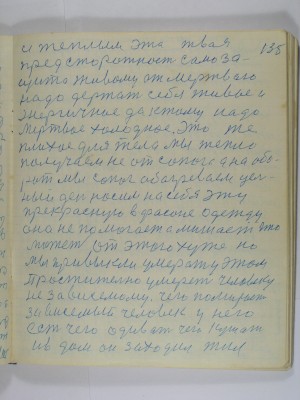 и теплым это твая
135
предсторожност само за-
щита живому от мертвого
надо держат себя живое и
энергичное да к тому надо
мертвое холодное, это те
плохое для тела мы тепло
получаем не от сапога а на обо-
рот мы сапог обогреваем це-
ный ден носим на себя эту
прекрасную в фасоне одежду
она не помогает а мишает что
может от этого хуже но
мы привыкли умерат у этом
простително умерет человеку
не зависемому, чего помирает
зависемый человек у него
ест чего одиват чего кушат
и в дом он заходил жил